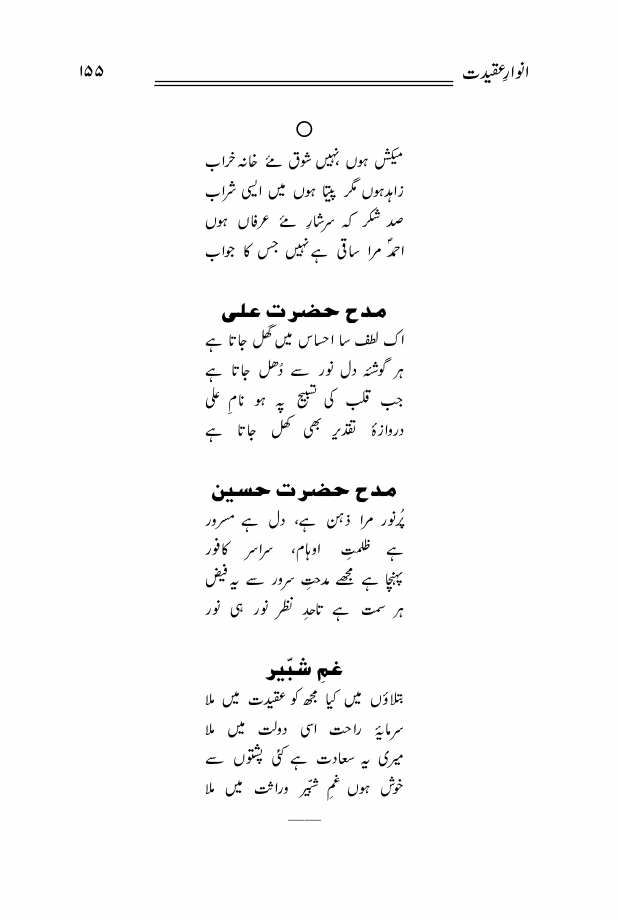 انوارِ عقیدت ۱۵۵
میکش ہوں نہیں شوق مئے خانہ خراب
زاہد ہوں مگر پیتا ہوں میں ایسی شراب
صد شکر کہ سرشارِ مئے عرفاں ہوں
احمدؐ مرا ساقی ہے نہیں جس کا جواب
مدح حضرت علی
اک لطف سا احساس میں گھل جاتا ہے
ہر گوشئہ دل نور سے دُھل جاتا ہے
جب قلب کی تسبیح پہ ہو نامِ علی
دروازۂ تقدیر بھی کھل جاتا ہے
مدح حضرت حسین
پُرنور مرا ذہن ہے، دل ہے مسرور
ہے ظلمتِ اوہام، سراسر کافور
پہنچا ہے مجھے مدحتِ سرور سے یہ فیض
ہر سمت ہے تاحدِ نظر نور ہی نور
غمِ شبّیر
بتلاؤں میں کیا مجھ کو عقیدت میں ملا
سرمایۂ راحت اسی دولت میں ملا
میری یہ سعادت ہے کئی پشتوں سے
خوش ہوں غمِ شبّیر وراثت میں ملا